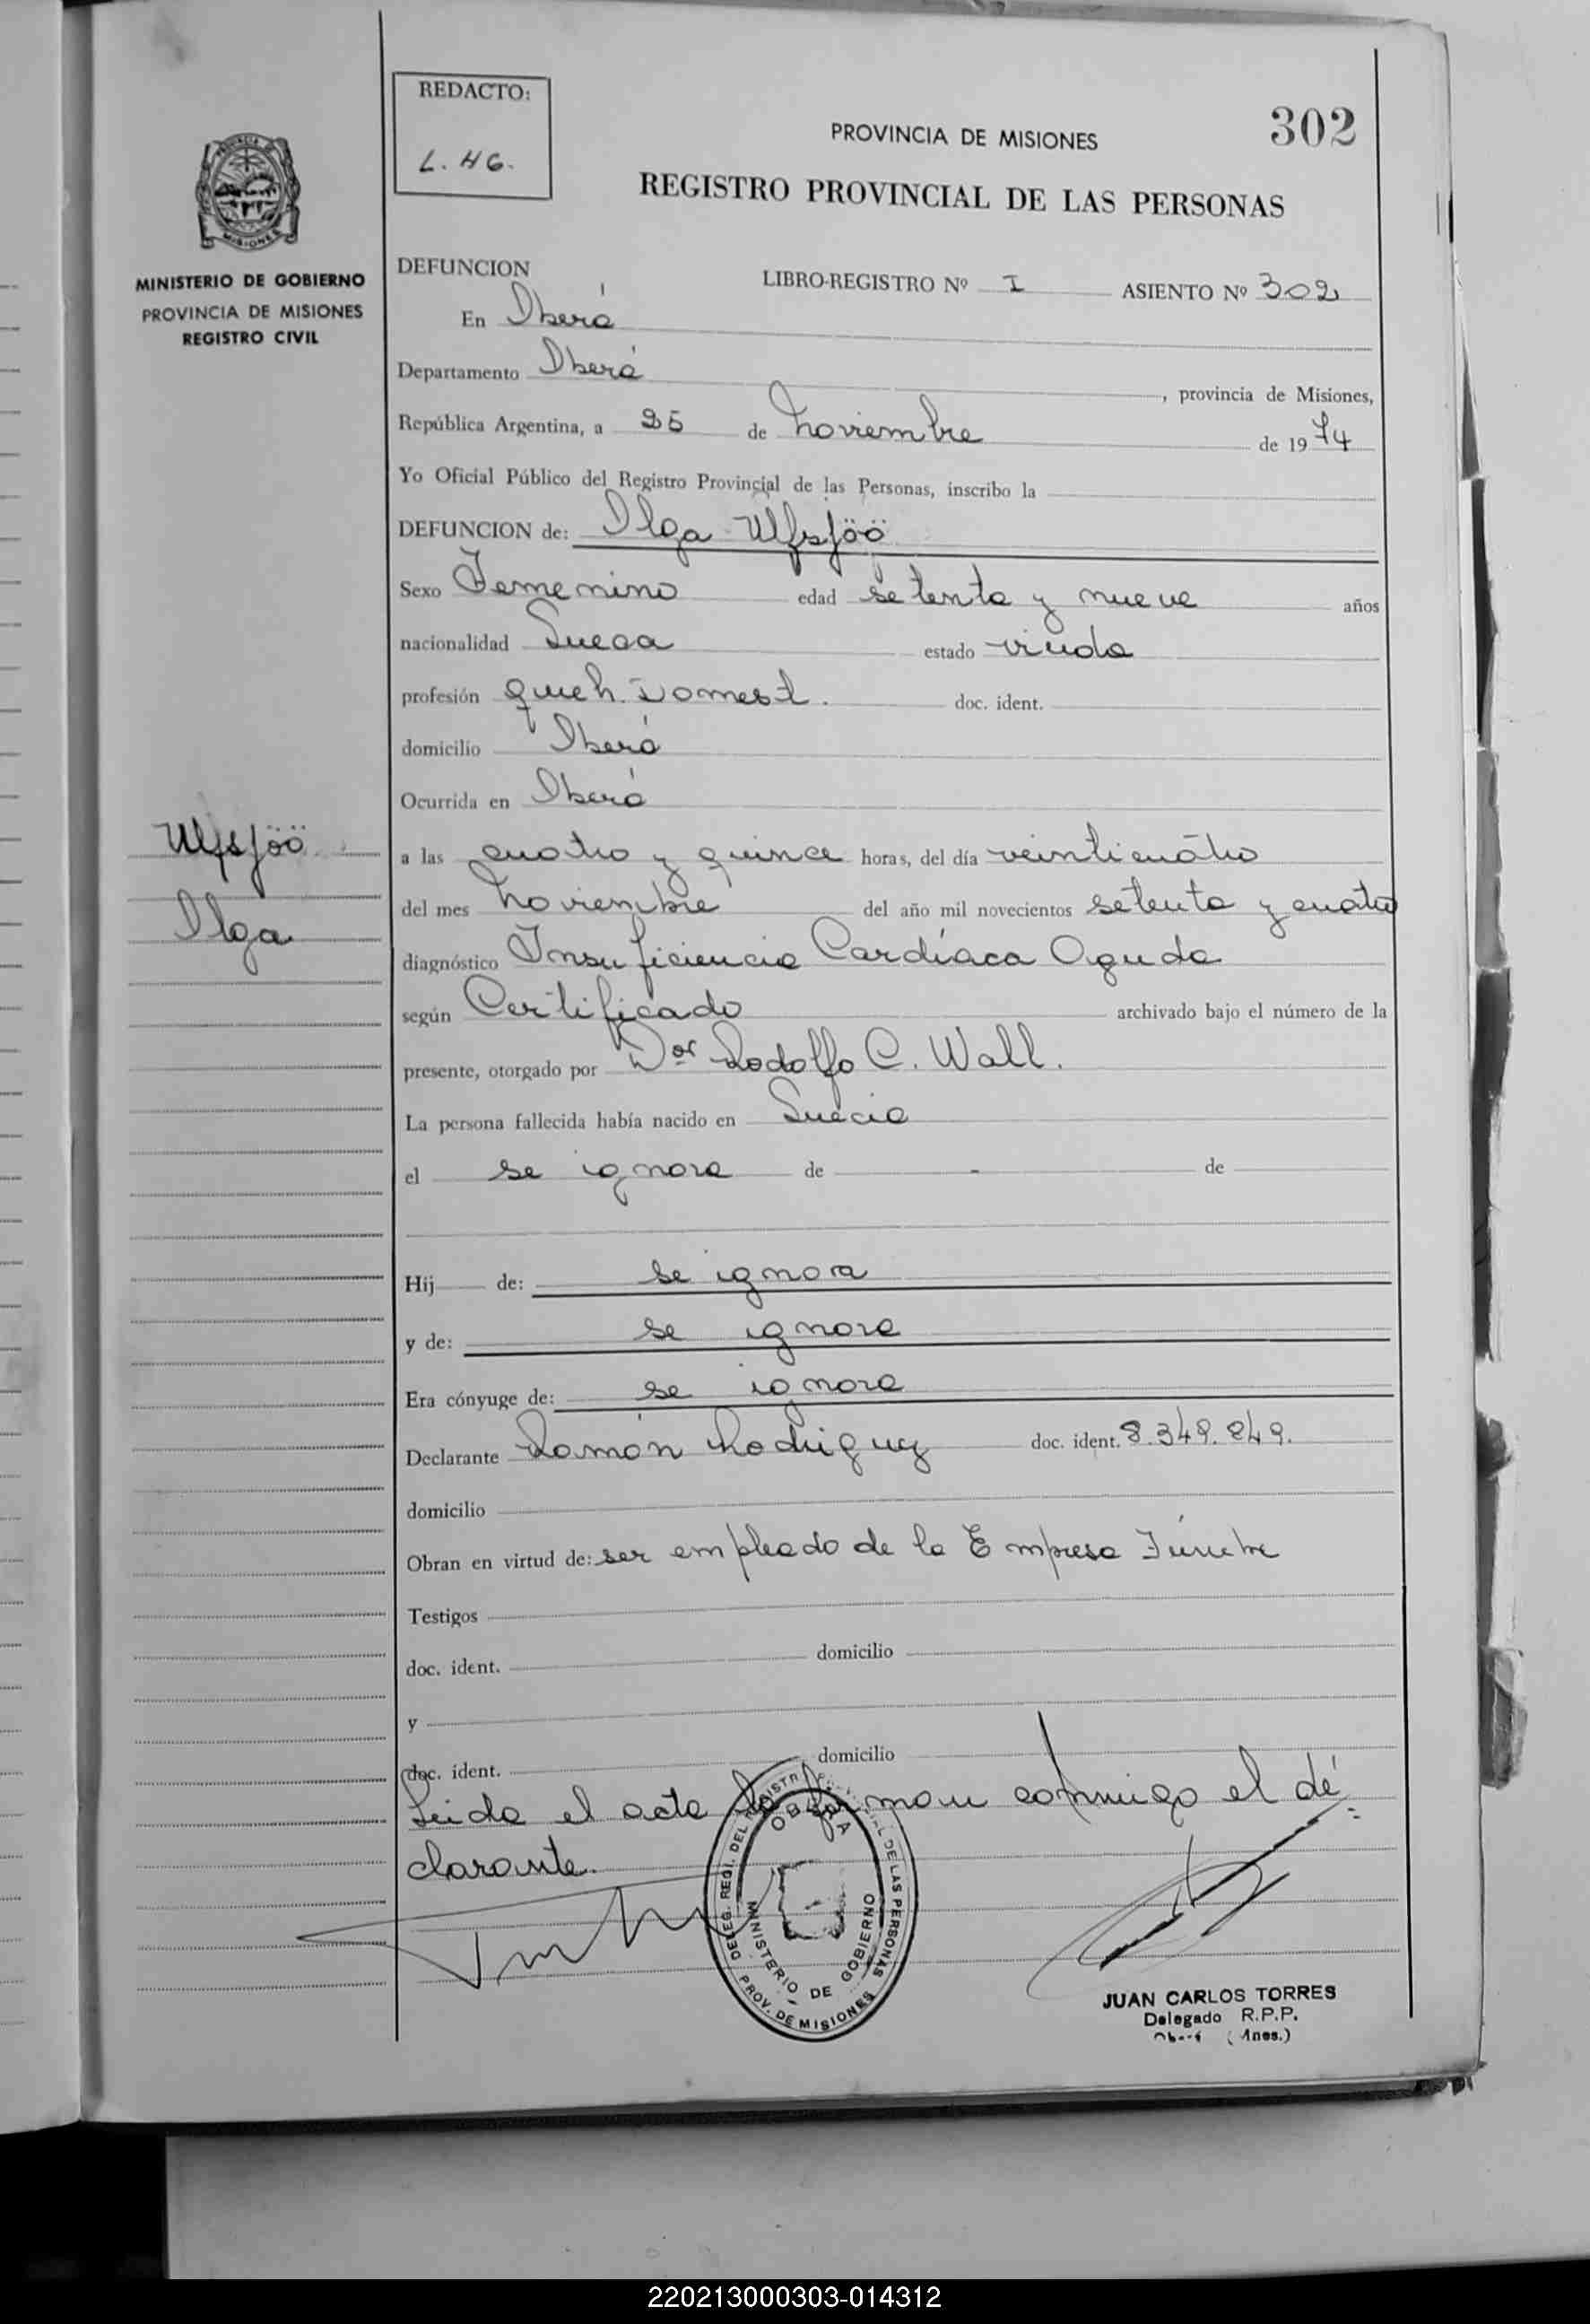 REDACTO:
L. HG.
302
PROVINCIA DE MISIONES
REGISTRO PROVINCIAL DE LAS PERSONAS
MISIONES
MINISTERIO DE GOBIERNO
PROVINCIA DE MISIONES
REGISTRO CIVIL
DEFUNCION LIBRO-REGISTRO Nº I ASIENTO Nº 302
En Oberá
Departamento Oberá, provincia de Misiones,
República Argentina, a 25 de Noviembre de 1974
Yo Oficial Público del Registro Provincial de las Personas, inscribo la
DEFUNCION de: Olga Ulfsjöö
Sexo Femenino edad setenta y nueve años
nacionalidad Sueca estado viuda
profesión queh. Domest. doc. ident.
domicilio Oberá
Ocurrida en Oberá
Ulfsjöö
Olga
a las cuatro y quince horas, del día veinticuatro
del mes Noviembre del año mil novecientos setenta y cuatro
diagnóstico Insuficiencia Cardíaca Aguda
según Certificado archivado bajo el número de la
presente, otorgado por Dor Rodolfo C. Wall.
La persona fallecida había nacido en Suecia
el se ignora de - de
Hij de: se ignora
y de: se ignora
Era cónyuge de: se ignora
Declarante Ramón Rodriguez doc. ident. 8.349.849.
domicilio
Obran en virtud de: ser empleado de la Empresa Fúnebre
Testigos
doc. ident. domicilio
y
doc. ident. domicilio
Leida el acta la firman conmigo el de=
clarante.
DELEG. REGI. DEL REGISTR PROVINCIAL DE LAS PERSONAS
OBERA
MINISTERIO DE GOBIERNO
PROV. DE MISIONES
JUAN CARLOS TORRES
Delegado R.P.P.
Oberá (Mnes.)
220213000303-014312